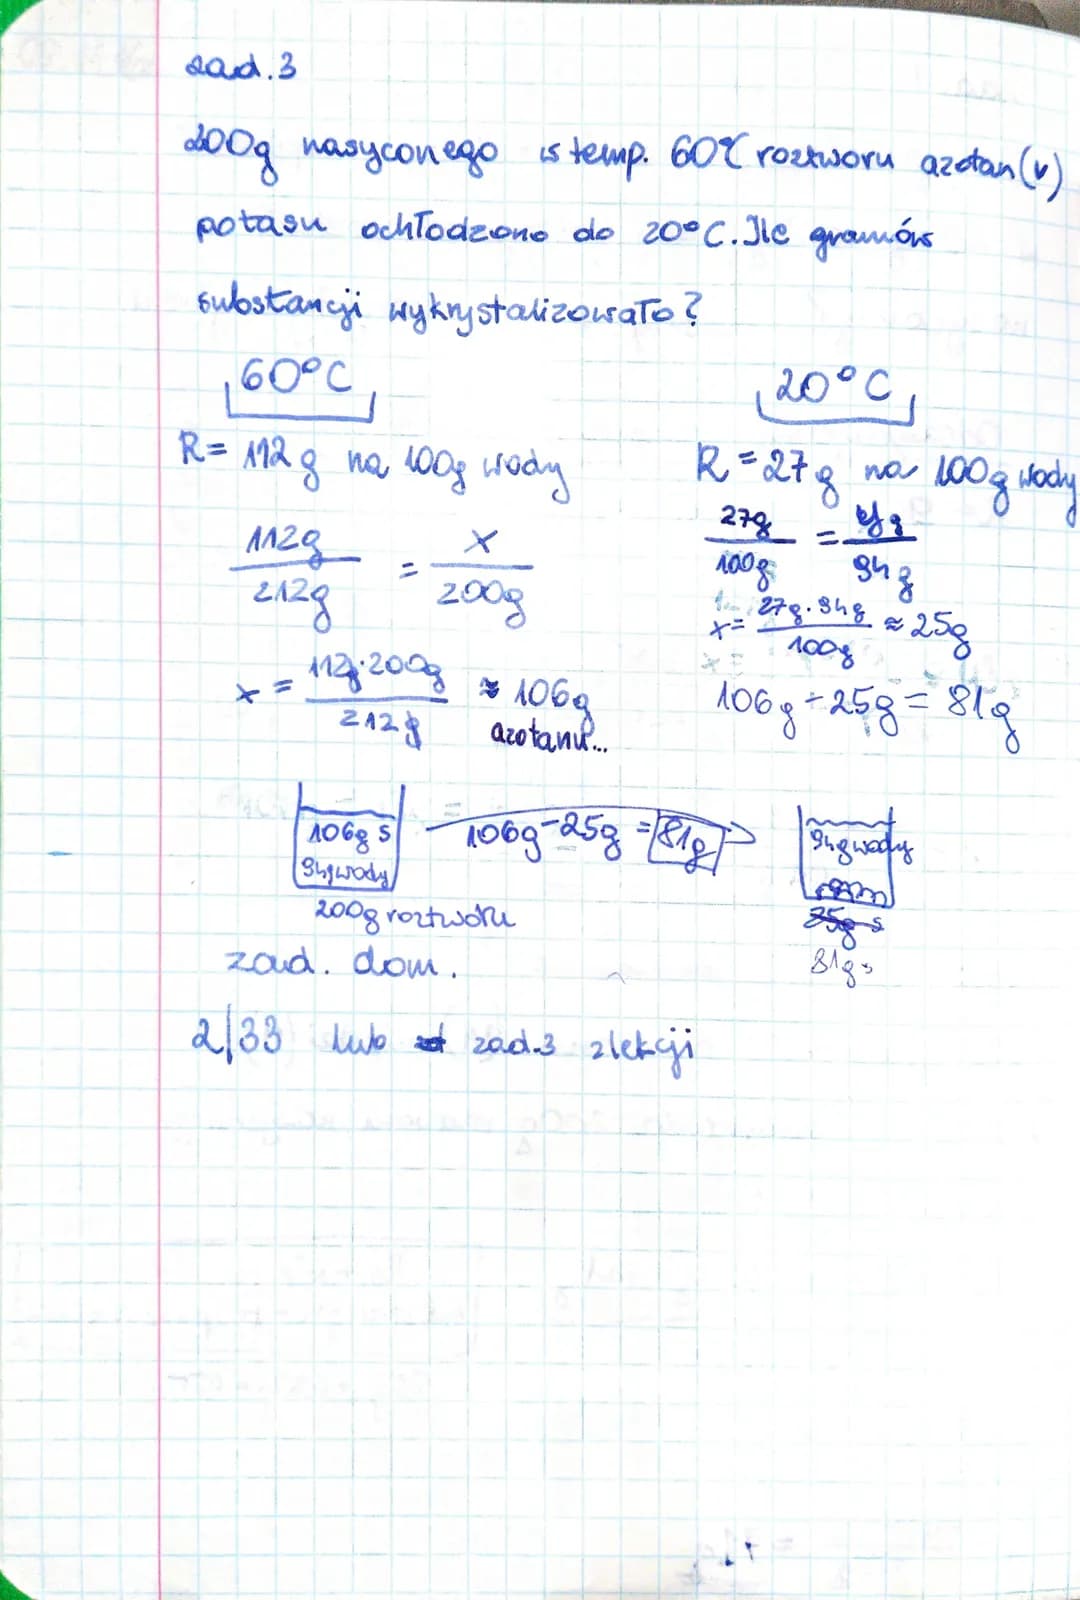 zad.3
200g nasyconego w temp. 60°C roztworu azotan(V)
potasu ochłodzono do 20°C. Ile gramów
substancji wykrystalizowało?
60°C
R= 112g na 100g wody
112g/212g = x/200g
x = 112g·200g/212g ≈ 106g
azotanu...
20°C
R=27g na 100g wody
27g/100g = y g/94g
x= 27g·94g/100g ≈ 25g
106g - 25g = 81g
106g s
94g wody
200g roztworu
106g-25g = 81g
94g wody
25g s
81g s
zad. dom.
2/33 lub zad.3 z lekcji